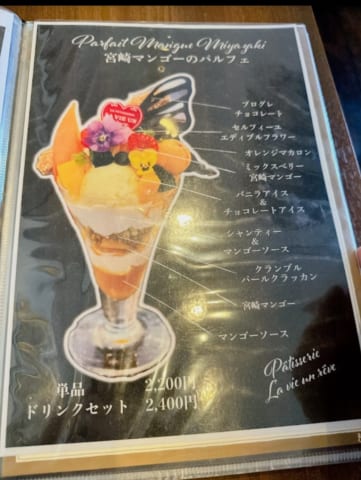 Parfait Mangue Miyazaki
宮崎マンゴーのパルフェ
LA VIE UN
プログレ
チョコレート
セルフィーユ
エディブルフラワー
オレンジマカロン
ミックスベリー
宮崎マンゴー
バニラアイス
&
チョコレートアイス
シャンティー
&
マンゴーソース
クランブル
パールクラッカン
宮崎マンゴー
マンゴーソース
単品 2,200円
ドリンクセット 2,400円
Patisserie
La vie un rêve